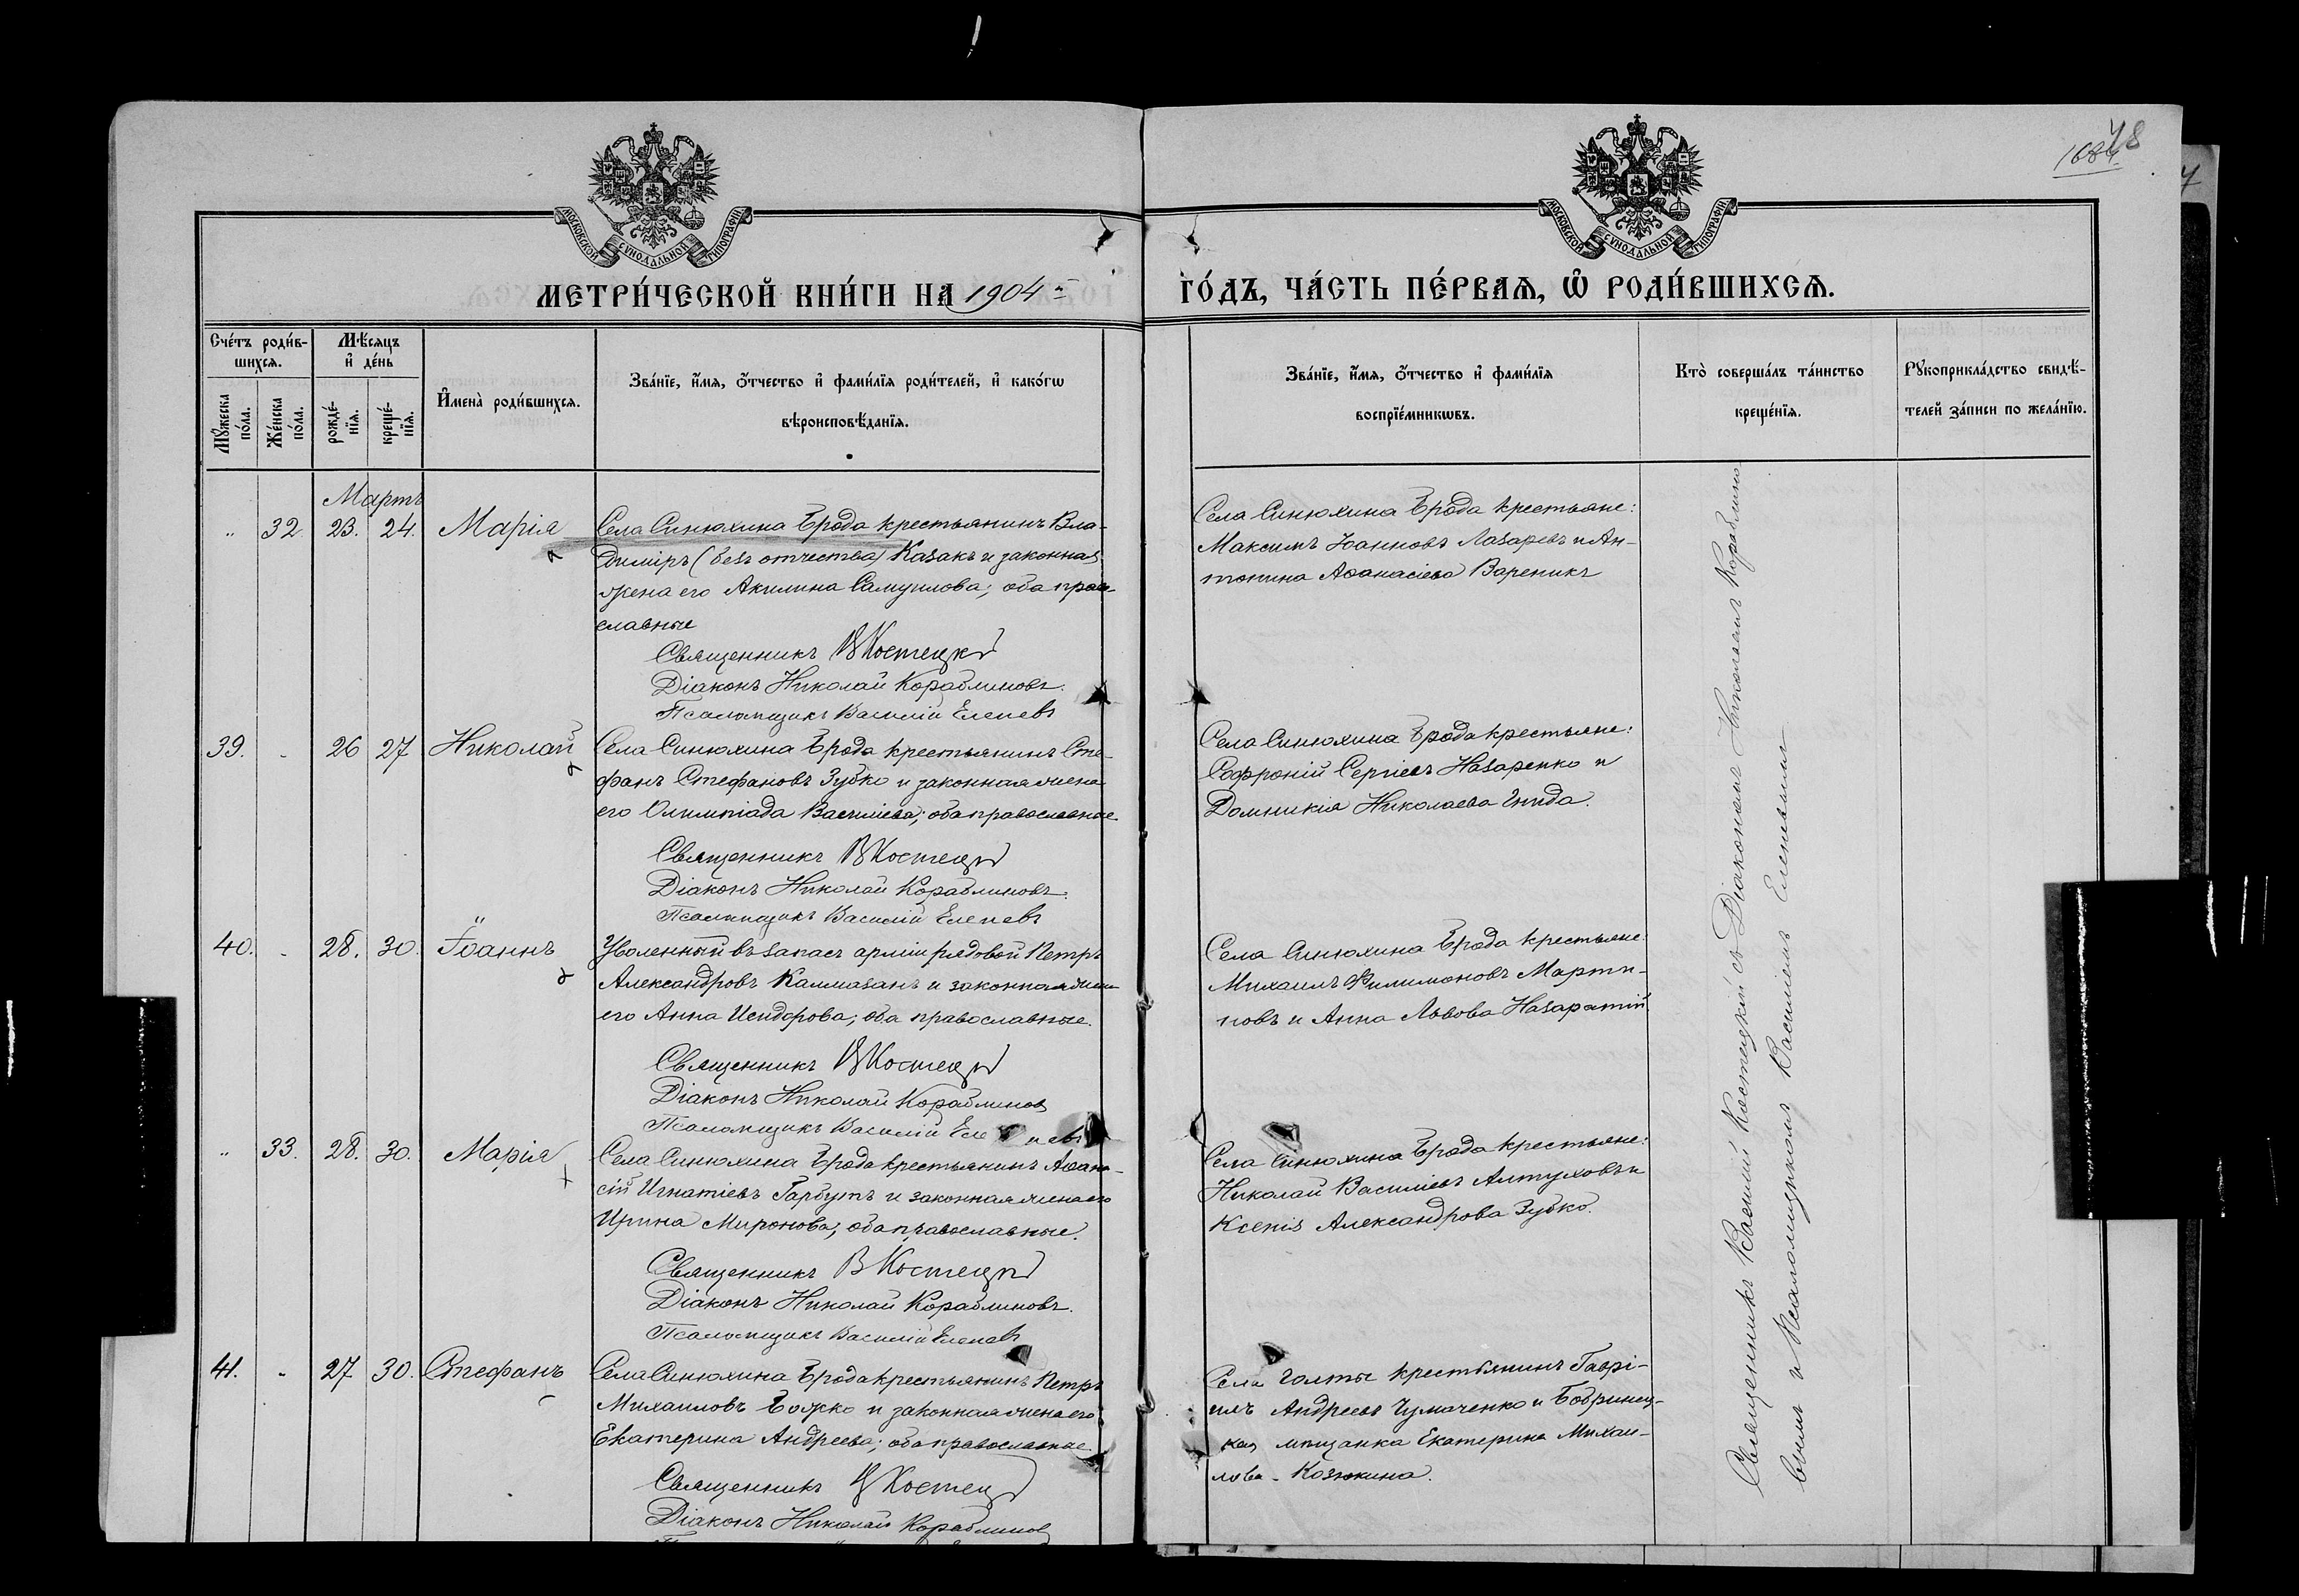 1687 48
МОСКОВСКОЙ СѴНОДАЛЬНОЙ ТИПОГРАФІИ
МОСКОВСКОЙ СѴНОДАЛЬНОЙ ТИПОГРАФІИ
МЕТРИ́ЧЕСКОЙ КНИ́ГИ НА 1904й
ГО́ДЪ, ЧА́СТЬ ПЕ́РВАѦ, Ѽ РОДИ́ВШИХСѦ.
Сче́тъ роди́в-
шихсѧ.
Мѹжеска по́ла.
Же́нска по́ла.
Мѣ́сяцъ
и҆ де́нь
рожде́-
нїѧ.
креще́-
нїѧ.
И҆мена̀ роди́вшихсѧ.
Зва́нїе, и҆́мѧ, ѻ҆́тчество и҆ фами́лїѧ роди́телей, и҆ како́гѡ
вѣроисповѣ́данїѧ.
Зва́нїе, и҆́мѧ, ѻ҆́тчество и҆ фами́лїѧ
воспрїе́мникѡвъ.
Кто̀ соверша́лъ та́инство
креще́нїѧ.
Рѹкоприкла́дство свидѣ́-
телей за́писи по жела́нїю.
Мартъ
„ 32 23. 24. Марія
Села Синюхина Брода крестьянинъ Вла-
диміръ (безъ отчества) Казакъ и законная
жена его Акилина Самуилова; оба право-
славные
Священникъ ВКостецкій
Діаконъ Николай Кораблиновъ.
Псаломщикъ Василій Елепевъ
Села Синюхина Брода крестьяне:
Максимъ Іоанновъ Лазаревъ и Ан-
тонина Аѳанасіева Вареникъ
39. - 26 27 Николай
Села Синюхина Брода крестьянинъ Сте-
фанъ Стефановъ Зубко и законная жена
его Олимпіада Василіева; оба православные
Священникъ ВКостецкій
Діаконъ Николай Кораблиновъ.
Псаломщикъ Василій Елепевъ
Села Синюхина Брода крестьяне:
Софроній Сергіевъ Назаренко и
Домникія Николаева Гнида.
40. - 28. 30. Іоаннъ
Уволенный въ запасъ арміи рядовой Петръ
Александровъ Калмазанъ и законная жена
его Анна Исидорова; оба православные.
Священникъ ВКостецкій
Діаконъ Николай Кораблиновъ
Псаломщикъ Василій Елепевъ
Села Синюхина Брода крестьяне:
Михаилъ Филимоновъ Марти-
новъ и Анна Львова Назаратій.
„ 33. 28. 30. Марія
Села Синюхина Брода крестьянинъ Аѳана-
сій Игнатіевъ Гарбузъ и законная жена его
Ирина Миронова; оба православные.
Священникъ ВКостецкій
Діаконъ Николай Кораблиновъ.
Псаломщикъ Василій Елепевъ
Села Синюхина Брода крестьяне:
Николай Василіевъ Алтуховъ и
Ксенія Александрова Зубко.
41. - 27 30. Стефанъ
Села Синюхина Брода крестьянинъ Петръ
Михаиловъ Божко и законная жена его
Екатерина Андреева; оба православные.
Священникъ ВКостецкій
Діаконъ Николай Кораблиновъ
Села Голты крестьянинъ Гаврі-
илъ Андреевъ Чумаченко и Бобринец-
кая мѣщанка Екатерина Михаи-
лова Козюкина.
Священникъ Василій Костецкій съ Діакономъ Николаемъ Кораблино-
вымъ и Псаломщикомъ Василіемъ Елепевымъ